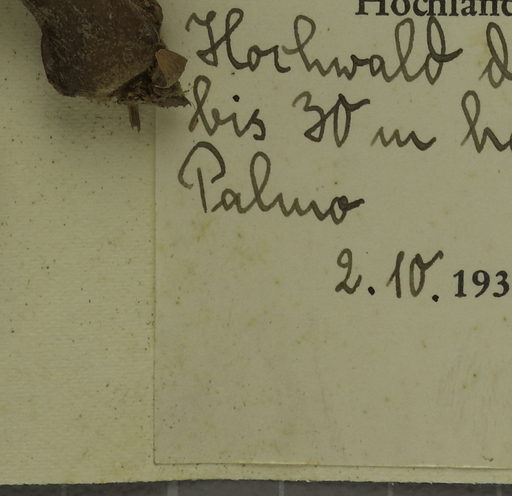 Hochland
Hochwald d
bis 30 m ho
Palmo
2. 10. 193